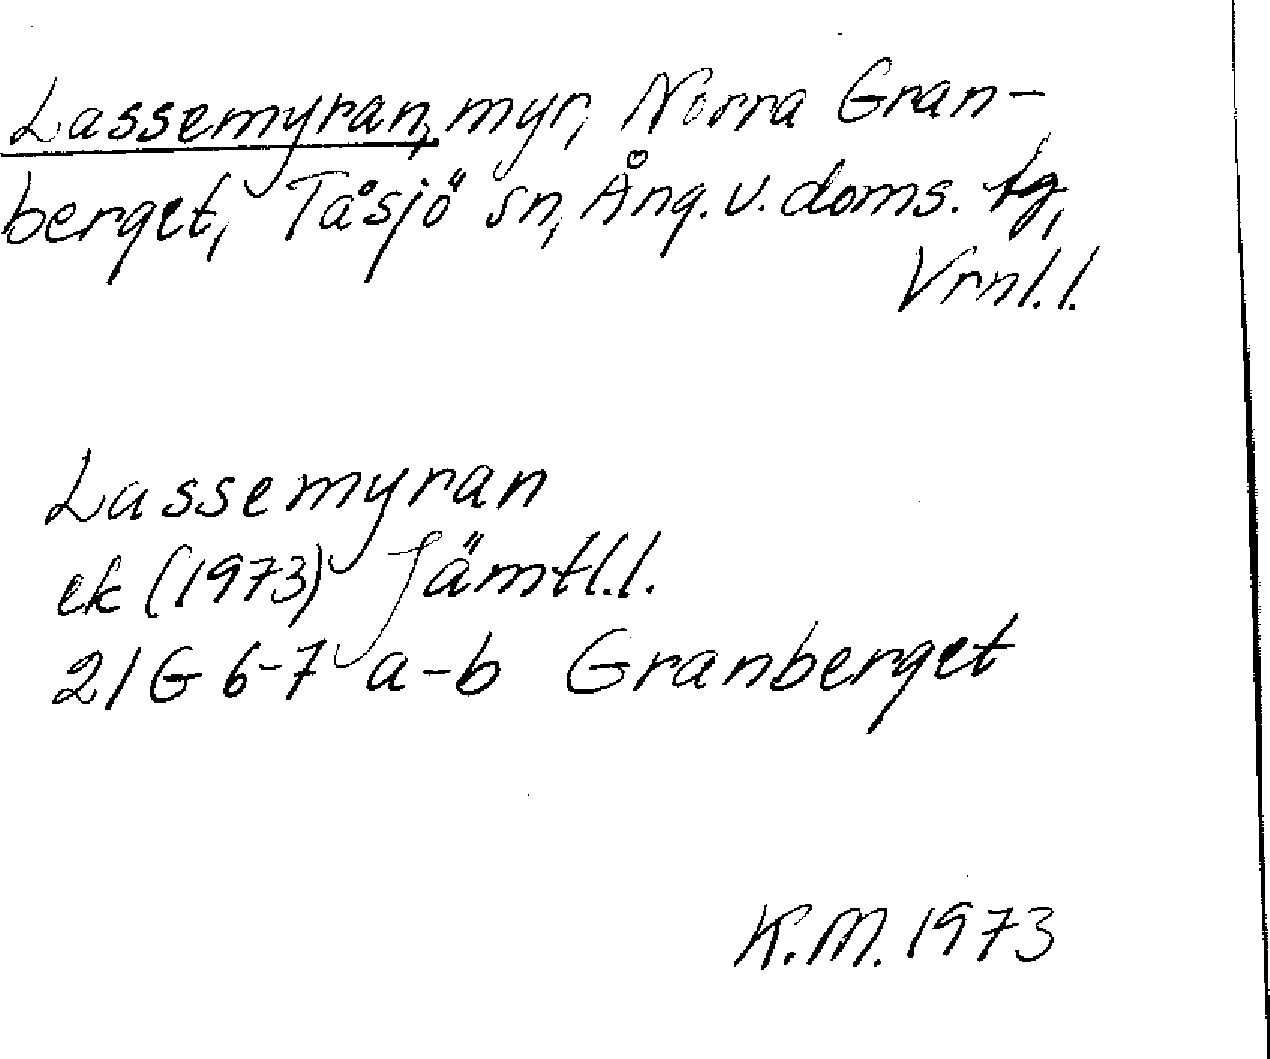 Lassemyran, myr, Norra Gran-
berget, Tåsjö sn, Ång. v. doms. tg,
Vrnl.l.
Lassemyran
ek (1973) Jämtl.l.
21G 6-7 a-b Granberget
K.M. 1973